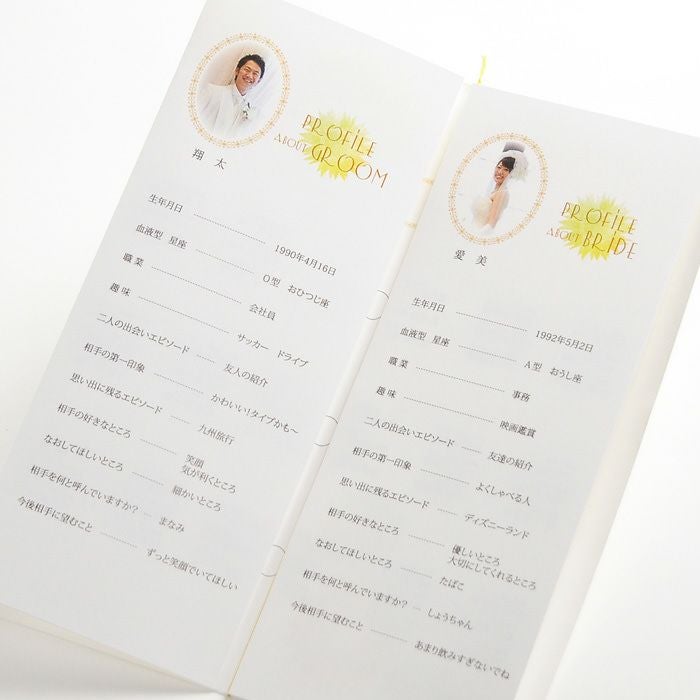 PROFILE
ABOUT GROOM
翔 太
生年月日 1990年4月16日
血液型 星座 O型 おひつじ座
職業 会社員
趣味 サッカー ドライブ
二人の出会いエピソード 友人の紹介
相手の第一印象 かわいい!タイプかも〜
思い出に残るエピソード 九州旅行
相手の好きなところ 笑顔
気が利くところ
なおしてほしいところ 細かいところ
相手を何と呼んでいますか? まなみ
今後相手に望むこと ずっと笑顔でいてほしい
PROFILE
ABOUT BRIDE
愛 美
生年月日 1992年5月2日
血液型 星座 A型 おうし座
職業 事務
趣味 映画鑑賞
二人の出会いエピソード 友達の紹介
相手の第一印象 よくしゃべる人
思い出に残るエピソード ディズニーランド
相手の好きなところ 優しいところ
大切にしてくれるところ
なおしてほしいところ たばこ
相手を何と呼んでいますか? しょうちゃん
今後相手に望むこと あまり飲みすぎないでね